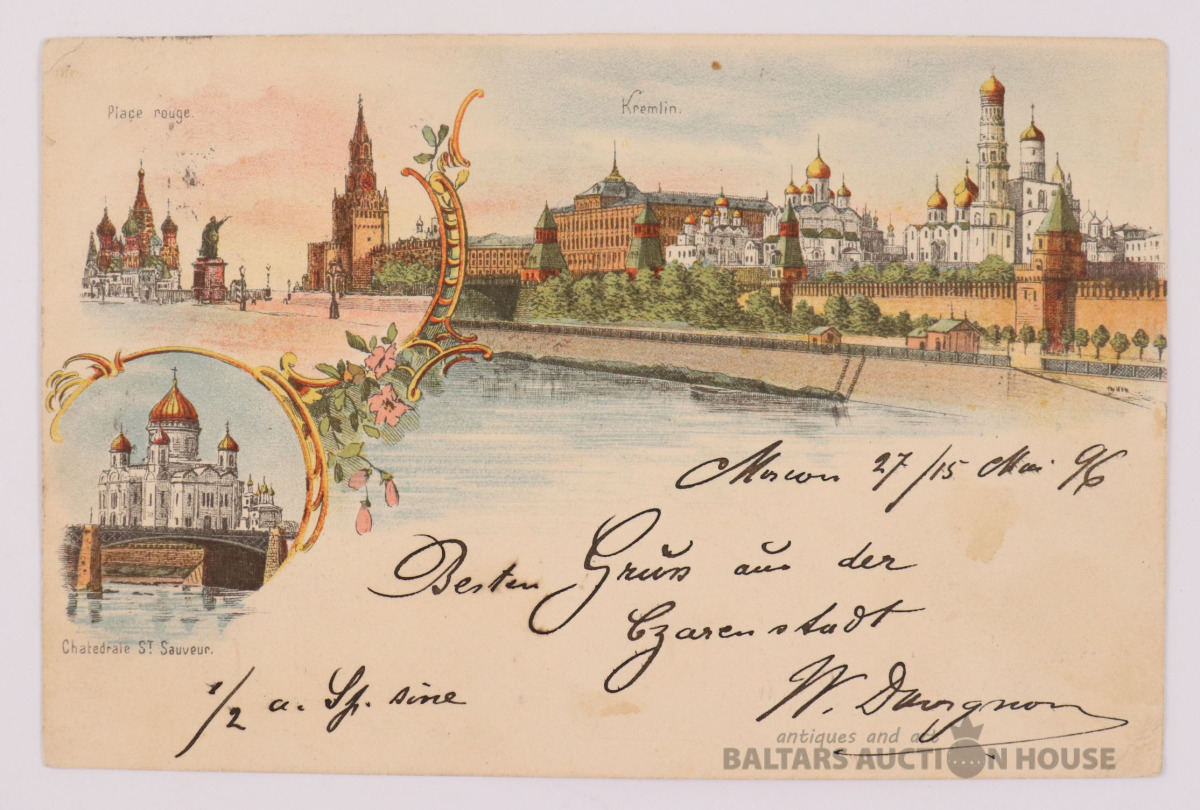 Place rouge.
Kremlin.
Chatedrale St Sauveur.
Moscou 27/15 Mai 96
Besten Gruss aus der
Czarenstadt
W. Davignon
1/2 a. Sp. sine
antiques and art
BALTARS AUCTION HOUSE